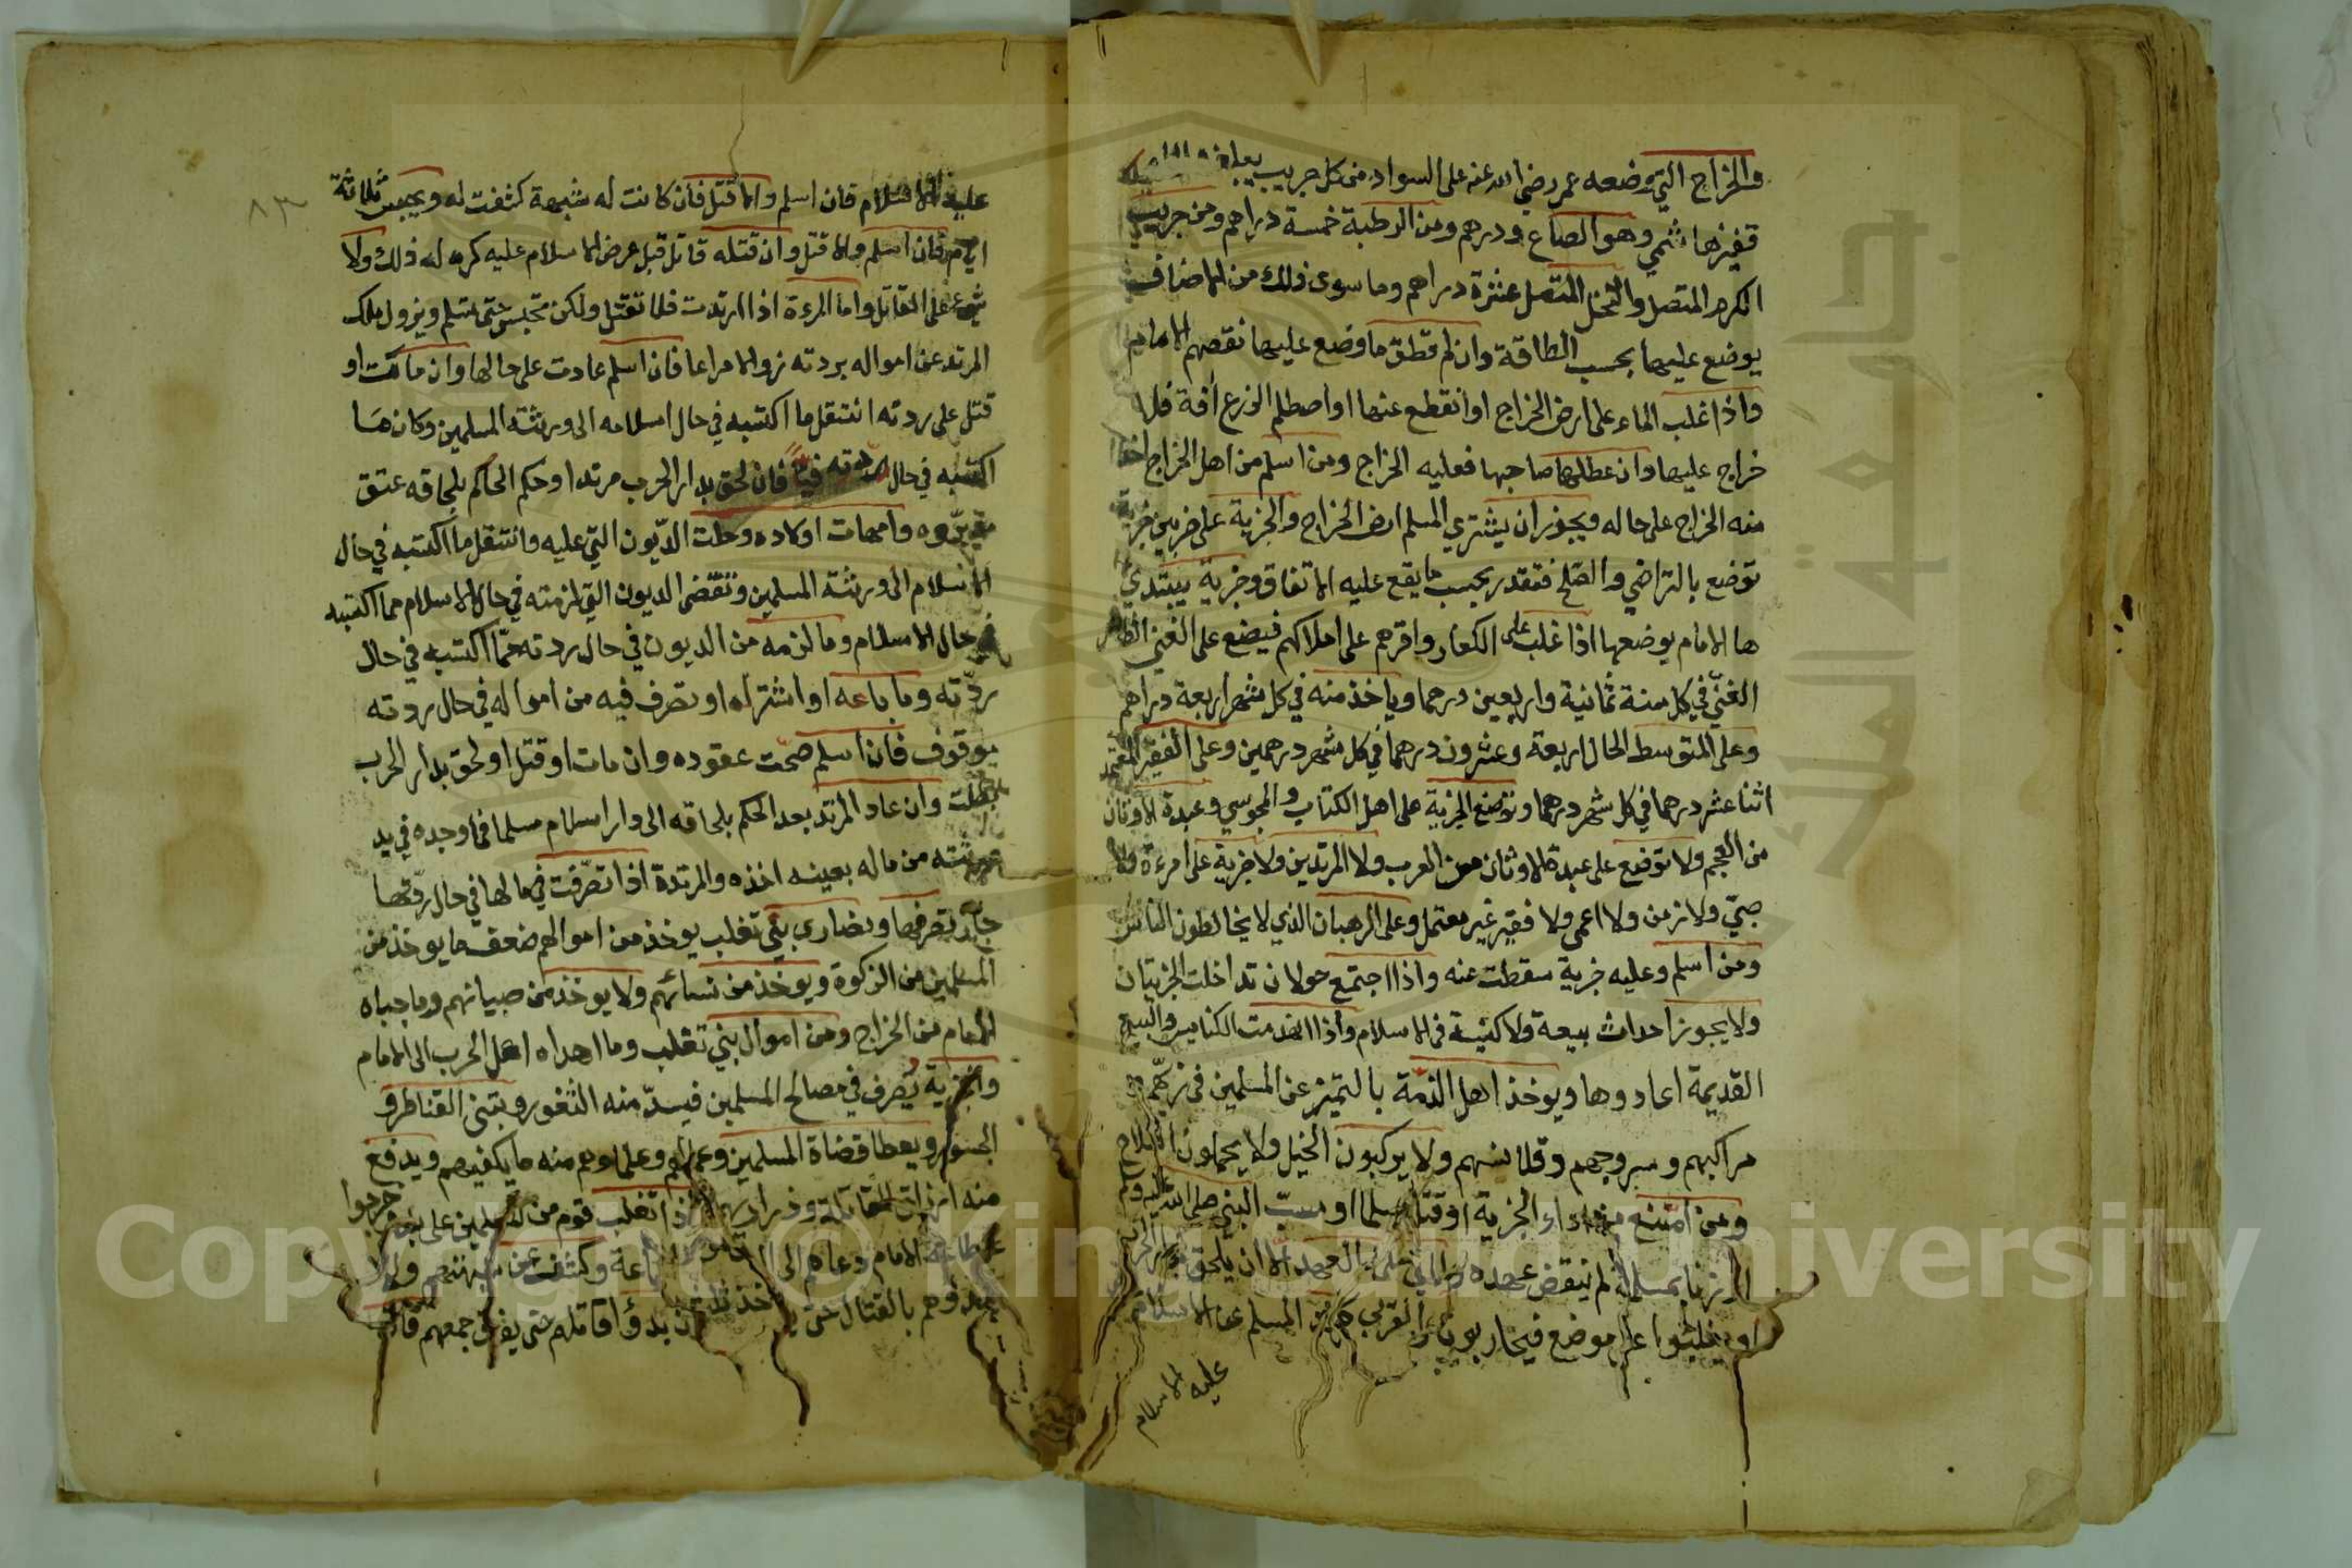 والخراج التي وضعه عمر رضي الله عنه على السواد من كل جريب يبلغه الماء
قفيز هاشمي وهو الصاع ودرهم ومن الرطبة خمسة دراهم ومن جريب
الكرم المتصل والنخل المتصل عشرة دراهم وما سوى ذلك من الاصناف
يوضع عليها بحسب الطاقة وان لم تطق ما وضع عليها نقصهم الامام
واذا غلب الماء على ارض الخراج او انقطع عنها او اصطلم الزرع آفة فلا
خراج عليها وان عطلها صاحبها فعليه الخراج ومن اسلم من اهل الخراج اخذ
منه الخراج على حاله ويجوز ان يشتري المسلم ارض الخراج والجزية على ضربين جزية
توضع بالتراضي والصلح فتقدر بحسب ما يقع عليه الاتفاق وجزية يبتدي
ها الامام بوضعها اذا غلب على الكفار واقرهم على املاكهم فيضع على الغني الظاهر
الغنى في كل سنة ثمانية واربعين درهما وياخذ منه في كل شهر اربعة دراهم
وعلى المتوسط الحال اربعة وعشرون درهما في كل شهر درهمين وعلى الفقير المعتمل
اثنا عشر درهما في كل شهر درهما وتوضع الجزية على اهل الكتاب والمجوسي وعبدة الاوثان
من العجم ولا توضع على عبدة الاوثان من العرب ولا المرتدين ولا جزية على امرءة ولا
صبي ولا زمن ولا اعمى ولا فقير غير معتمل وعلى الرهبان الذي لا يخالطون الناس
ومن اسلم وعليه جزية سقطت عنه واذا اجتمع حولان تداخلت الجزيتان
ولا يجوز احداث بيعة ولا كنيسة في الاسلام واذا انهدمت الكنايس والبيع
القديمة اعادوها ويوخذ اهل الذمة بالتميز عن المسلمين في زيهم
مراكبهم وسروجهم وقلانسهم ولا يركبون الخيل ولا يحملون السلاح
ومن امتنع من اداء الجزية او قتل مسلما او سب النبي صلى الله عليه وسلم
او زنا بمسلمة لم ينقض عهده العهد الا ان يلحق بدار الحرب
او يغلبوا على موضع فيحاربون المسلم عن الاسلام
عليه الاسلام
٨٣
عليه الاسلام فان اسلم والا قتل فان كانت له شبهة كشفت له ويحبس ثلاثة
ايام فان اسلم والا قتل وان قتله قاتل قبل عرض الاسلام عليه كره له ذلك ولا
شيء على القاتل واما المرءة اذا ارتدت فلا تقتل ولكن تحبس حتى تسلم ويزول ملك
المرتد عن امواله بردته زوالا مراعا فان اسلم عادت على حالها وان مات او
قتل على ردته انتقل ما اكتسبه في حال اسلامه الى ورثته المسلمين وكان ما
اكتسبه في حال ردته فيأ فان لحق بدار الحرب مرتدا وحكم الحاكم بلحاقه عتق
مدبروه وامهات اولاده وحلت الديون التي عليه وانتقل ما اكتسبه في حال
الاسلام الى ورثته المسلمين وتقضى الديون التي لزمته في حال الاسلام مما اكتسبه
في حال الاسلام وما لزمه من الديون في حال ردته مما اكتسبه في حال
ردته وما باعه او اشتراه او تصرف فيه من امواله في حال ردته
موقوف فان اسلم صحت عقوده وان مات او قتل او لحق بدار الحرب
بطلت وان عاد المرتد بعد الحكم بلحاقه الى دار اسلام مسلما فما وجده في يد
ورثته من ماله بعينه اخذه والمرتدة اذا تصرفت في مالها في حال ردتها
جاز تصرفها ونصارى بني تغلب يوخذ من اموالهم ضعف ما يوخذ من
المسلمين من الزكوة ويوخذ من نسائهم ولا يوخذ من صبيانهم وما جباه
الامام من الخراج ومن اموال بني تغلب وما اهداه اهل الحرب الى الامام
والجزية يصرف في مصالح المسلمين فيسد منه الثغور ويبتنى القناطر و
الجسور ويعطا قضاة المسلمين وعمالهم وعلماوهم منه ما يكفيهم ويدفع
منه ارزاق المقاتلة وذراريهم واذا تغلب قوم من المسلمين على بلد وخرجوا
عن طاعة الامام دعاهم الى الجماعة وكشف عن شبهتهم ولا
يبدؤهم بالقتال حتى بدؤا قاتلهم حتى يفرق جمعهم فان